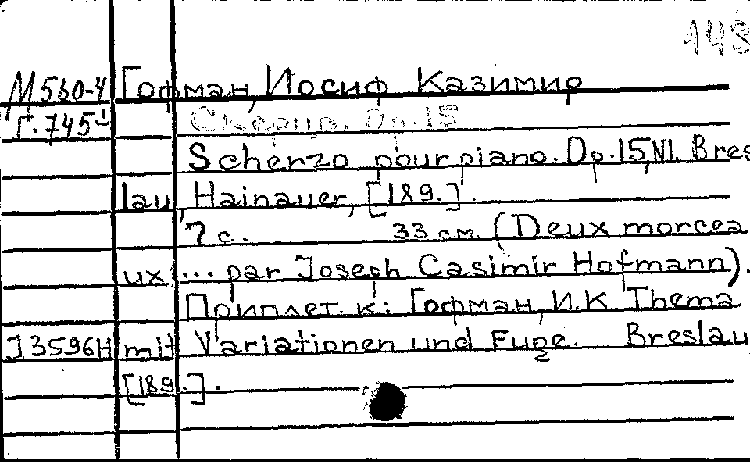 148
М560-4 Гофман, Иосиф Казимир
Г.745 Скерцо. Оп.15
Scherzo pour piano. Op.15 N1. Bres
lau, Hainauer, [189.].
7 с. 33 см. (Deux morcea
ux ... par Joseph Casimir Hofmann).
Приплет. к: Гофман, И.К. Thema
J3596H mit Variationen und Fuge. Breslau
[189.].